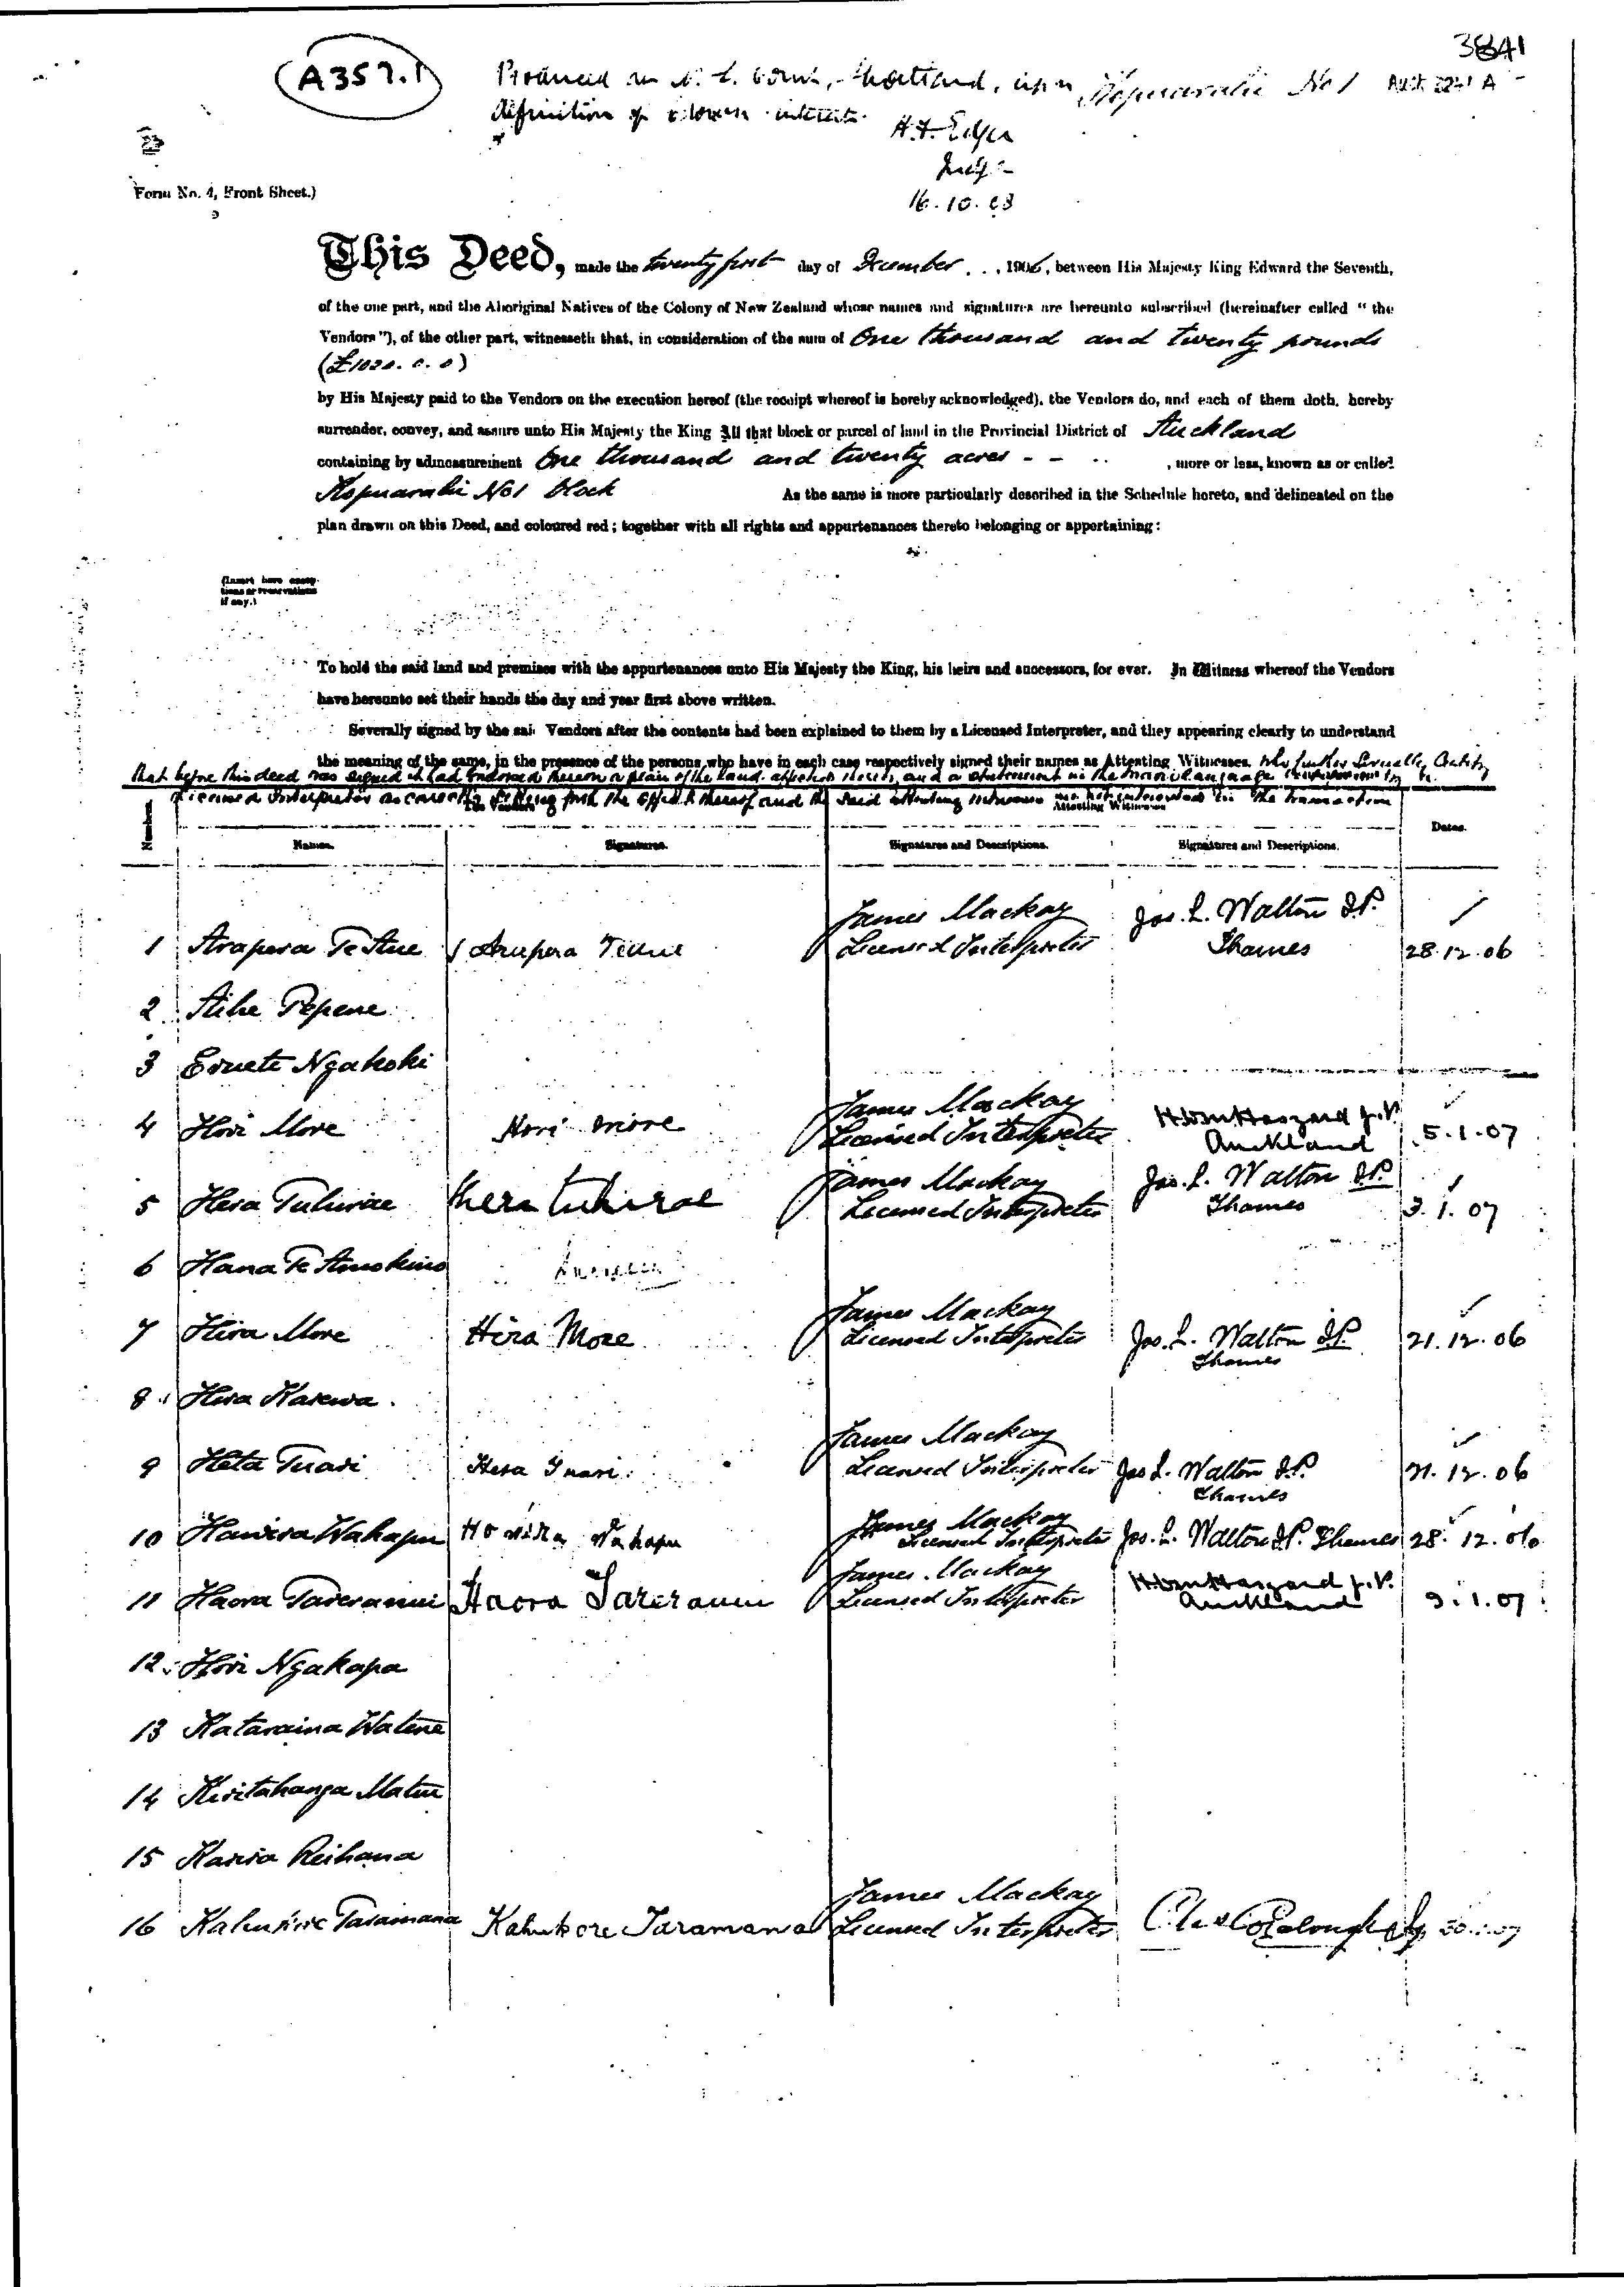 3841
A357.1
Produced in N. L. Court, Shortland, upon Kopuarahi No 1
definition of Crown interests.
H. F. Edger
Judge
16.10.08
Form No. 4, Front Sheet.)
This Deed, made the twenty first day of December . . , 1906, between His Majesty King Edward the Seventh,
of the one part, and the Aboriginal Natives of the Colony of New Zealand whose names and signatures are hereunto subscribed (hereinafter called "the
Vendors"), of the other part, witnesseth that, in consideration of the sum of One thousand and twenty pounds
(£1020. 0. 0)
by His Majesty paid to the Vendors on the execution hereof (the receipt whereof is hereby acknowledged), the Vendors do, and each of them doth, hereby
surrender, convey, and assure unto His Majesty the King All that block or parcel of land in the Provincial District of Auckland
containing by admeasurement One thousand and twenty acres - - .. , more or less, known as or called
Kopuarahi No 1 block As the same is more particularly described in the Schedule hereto, and delineated on the
plan drawn on this Deed, and coloured red; together with all rights and appurtenances thereto belonging or appertaining:
(Insert here excep-
tions or reservations
if any.)
To hold the said land and premises with the appurtenances unto His Majesty the King, his heirs and successors, for ever. In Witness whereof the Vendors
have hereunto set their hands the day and year first above written.
Severally signed by the said Vendors after the contents had been explained to them by a Licensed Interpreter, and they appearing clearly to understand
the meaning of the same, in the presence of the persons who have in each case respectively signed their names as Attesting Witnesses, who further Severally Certify
that before this deed was signed it had endorsed thereon a plan of the land and a statement in the Maori language by a
Licensed Interpreter as correctly setting forth the effect thereof and the said attesting witnesses are not interested in the transaction
Numbers. Attesting Witnesses. Dates.
Names. Signatures. Signatures and Descriptions. Signatures and Descriptions.
James Mackay Jos. L. Walton J.P.
1 Arapera Te Aue Arapera Teaue Licensed Interpreter Thames 28.12.06
2 Aihe Pepene
3 Eruete Ngakoki
James Mackay H. Wm Haszard J.P.
4 Hori More Hori more Licensed Interpreter Auckland 5.1.07
James Mackay Jos. L. Walton J.P.
5 Hera Tuhirae hera tuhirae Licensed Interpreter Thames 3.1.07
6 Hana Te Amokino
James Mackay
7 Hira More Hira More Licensed Interpreter Jos. L. Walton J.P. 21.12.06
Thames
8 Hira Karewa.
James Mackay
9 Heta Tuari Licensed Interpreter Jos L. Walton J.P. 21.12.06
Thames
James Mackay
10 Hawira Wahapu Howira Wahapu Licensed Interpreter Jos. L. Walton J.P. Thames 28.12.06
James Mackay H. Wm Haszard J.P.
11 Haora Tareranui Haora Tareranui Licensed Interpreter Auckland 9.1.07
12 Hori Ngakapa
13 Kataraina Watene
14 Kiritahanga Matiu
15 Karira Reihana
James Mackay
16 Kahukore Taramana Kahukore Taramana Licensed Interpreter